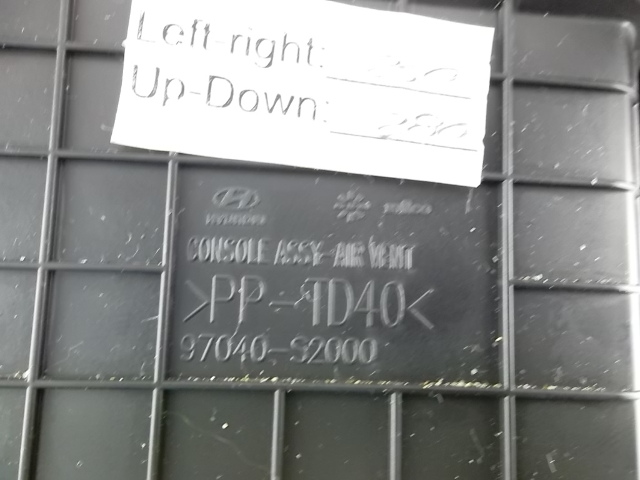 Left-right:
Up-Down: 280
HYUNDAI
CONSOLE ASSY-AIR VENT
>PP-TD40<
97040-S2000